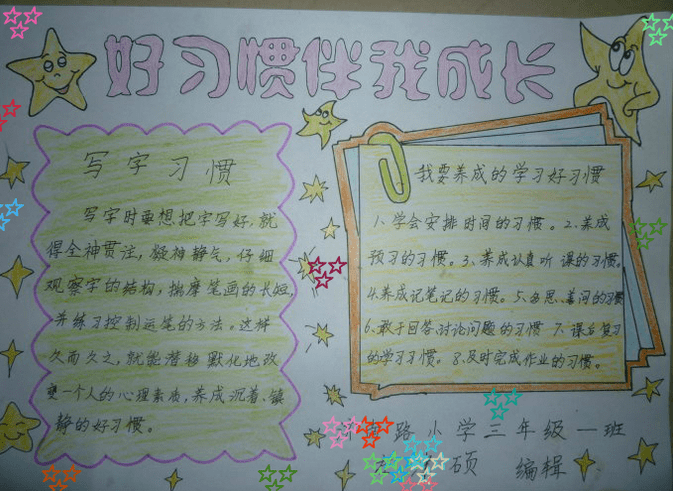 好习惯伴我成长
写字习惯
写字时要想把字写好,就
得全神贯注,凝神静气,仔细
观察字的结构,揣摩笔画的长短,
并练习控制运笔的方法。这样
久而久之,就能潜移默化地改
变一个人的心理素质,养成沉着、镇
静的好习惯。
我要养成的学习好习惯
1、学会安排时间的习惯。2、养成
预习的习惯。3、养成认真听课的习惯。
4、养成记笔记的习惯。5、多思、善问的习惯
6、敢于回答、讨论问题的习惯 7、课后复习
的学习习惯。8、及时完成作业的习惯。
路小学三年级一班
硕 编辑